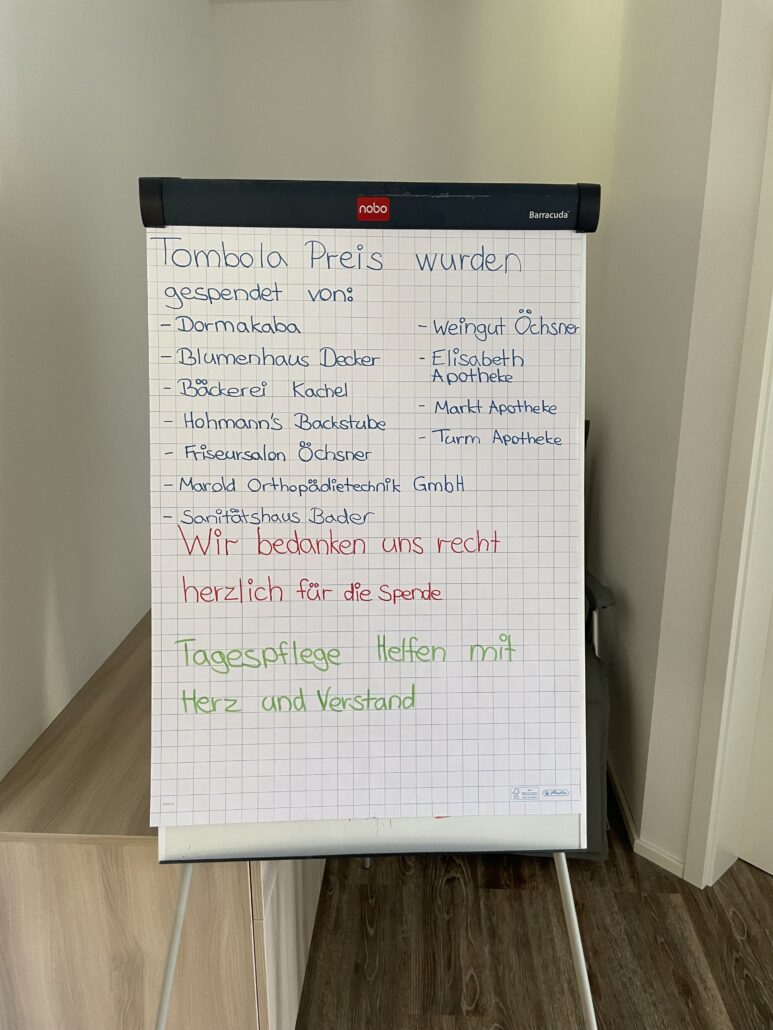 nobo
Barracuda™
Tombola Preis wurden
gespendet von:
- Dormakaba
- Blumenhaus Decker
- Bäckerei Kachel
- Hohmann's Backstube
- Friseursalon Öchsner
- Marold Orthopädietechnik GmbH
- Sanitätshaus Bader
- Weingut Öchsner
- Elisabeth
Apotheke
- Markt Apotheke
- Turm Apotheke
Wir bedanken uns recht
herzlich für die Spende
Tagespflege Helfen mit
Herz und Verstand